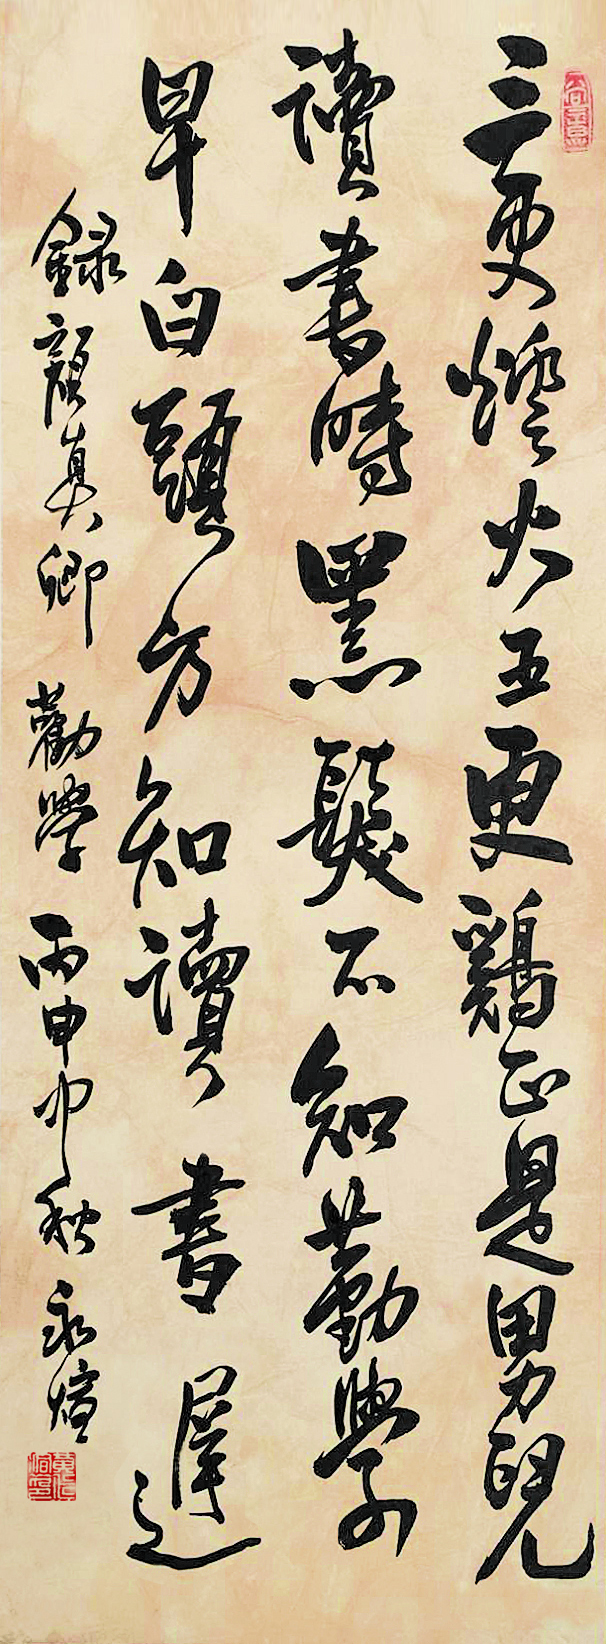 三更燈火五更鷄正是男兒
讀書時黑髮不知勤學
早白頭方知讀書遲
錄顏真卿勸學丙申中秋永煊